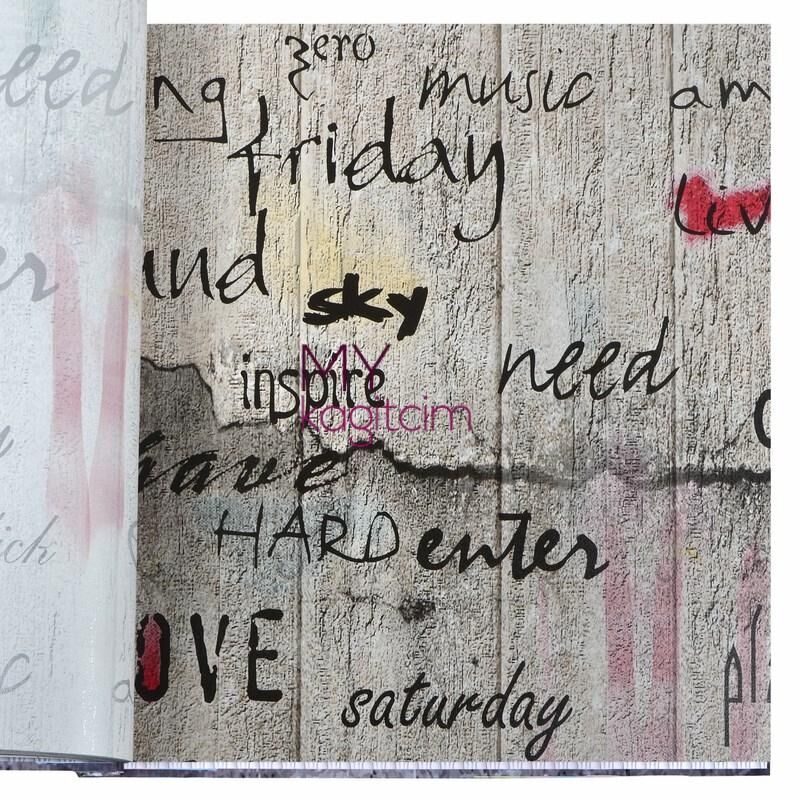 zero
ng
music
am
friday
liv
und
sky
need
inspire
MY
kagitcim
have
HARD enter
OVE
saturday
eed
er
ick
c